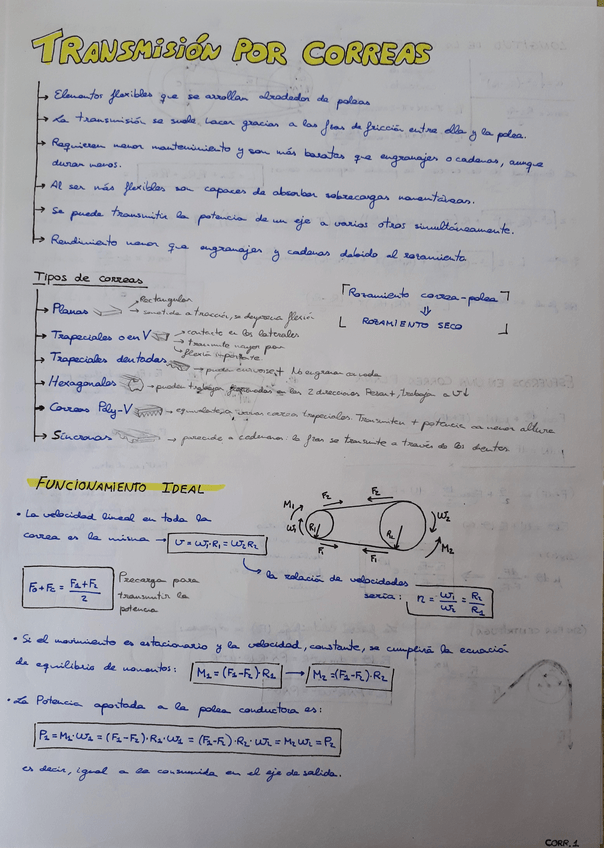 TRANSMISIÓN POR CORREAS
→ Elementos flexibles que se arrollan alrededor de poleas
→ La transmisión se suele hacer gracias a las fzas de fricción entre ella y la polea.
→ Requieren menor mantenimiento y son más baratas que engranajes o cadenas, aunque
duran menos.
→ Al ser más flexibles son capaces de absorber sobrecargas momentáneas.
→ Se puede transmitir la potencia de un eje a varios otros simultáneamente.
→ Rendimiento menor que engranajes y cadenas debido al rozamiento
Tipos de correas
→ Planas → Rectangular
→ sometida a tracción, se desprecia flexión
→ Trapeciales o en V → contacto en los laterales
→ transmite mayor par
→ flexión importante
→ Trapeciales dentadas → No engrana con nada
→ Hexagonales → pueden trabajar en las 2 direcciones
→ Correas Poly-V → varias correas trapeciales. Transmiten + potencia con menor altura
→ Síncronas → parecido a cadenas: la fza se transmite a través de los dientes.
Rozamiento correa-polea
⇓
ROZAMIENTO SECO
FUNCIONAMIENTO IDEAL
• La velocidad lineal en toda la
correa es la misma → v = ω1·R1 = ω2R2
la relación de velocidades
sería: n = ω1/ω2 = R2/R1
M1 F2 F2 ω1 R1 R2 ω2 M2 F1 F1
= (F1+F2)/2 Precarga para
transmitir la
potencia
• Si el movimiento es estacionario y la velocidad, constante, se cumplirá la ecuación
de equilibrio de momentos: M1 = (F1-F2)·R1 → M2 = (F1-F2)·R2
• La Potencia aportada a la polea conductora es:
P1 = M1·ω1 = (F1-F2)·R1·ω1 = (F1-F2)·R2·ω2 = M2ω2 = P2
es decir, igual a la consumida en el eje de salida.
CORR.1